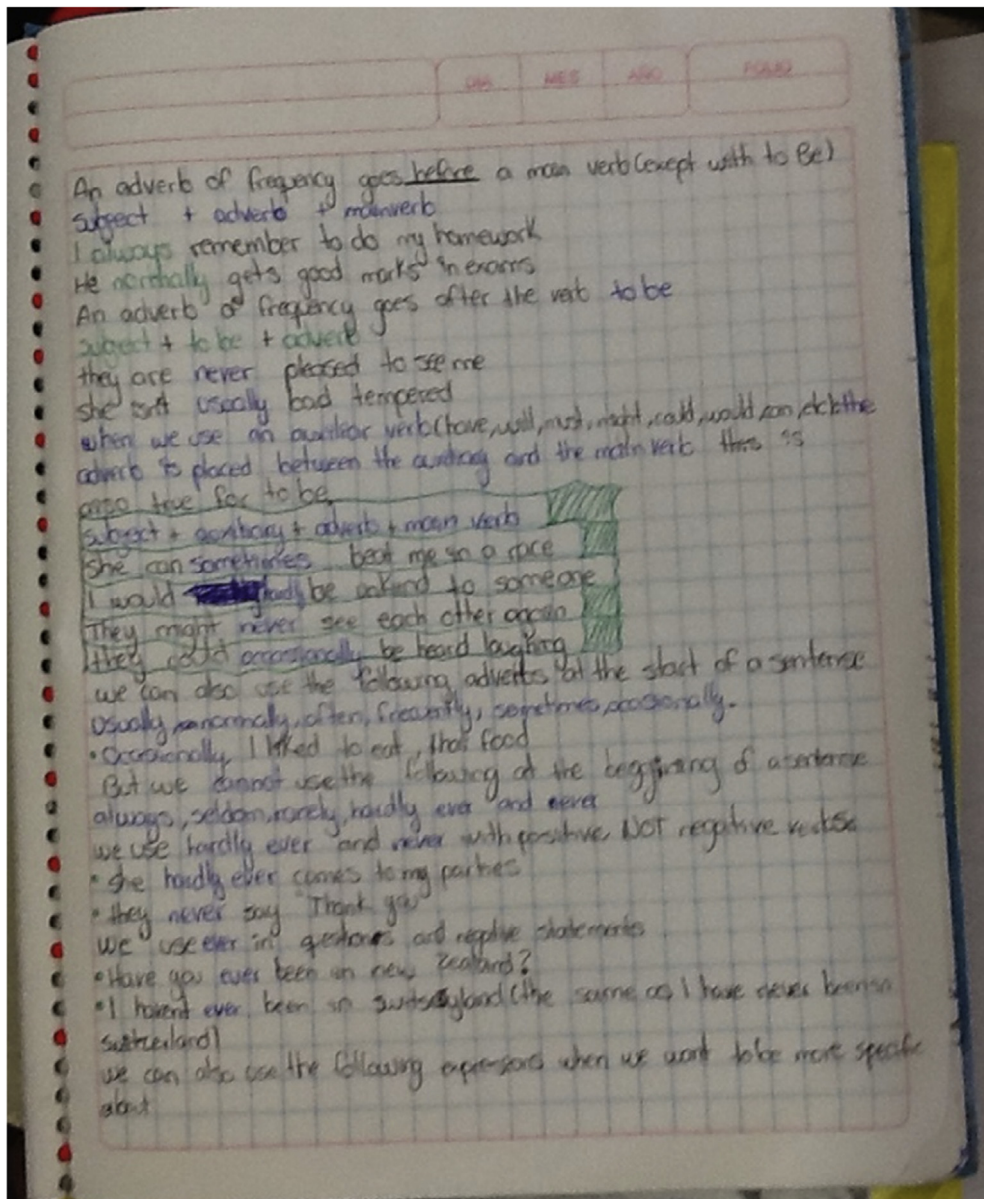 DIA MES AÑO FOLIO
An adverb of frequency goes before a main verb (except with to Be)
subject + adverb + mainverb
I always remember to do my homework
He normally gets good marks in exams
An adverb of frequency goes after the verb to be
subject + to be + adverb
they are never pleased to see me
she isn't usually bad tempered
when we use an verb (have, will, must, might, could, would, can, etc) the
adverb is placed between the auxiliary and the main verb this is
true for to be
subject + auxiliary + adverb + main verb
She can sometimes beat me in a race
I would be unkind to someone
They might never see each other again
they could occasionally be heard laughing
we can also use the following adverbs at the start of a sentence
Usually, normally, often, frecuently, sometimes, occasionally.
• Occasionally, I liked to eat, thai food
But we cannot use the following at the beggining of a sentence
always, seldom, rarely, hardly ever and never
we use hardly ever and never with positive, NOT negative
• She hardly ever comes to my parties
• they never say "Thank you"
we use ever in and negative statements
• Have you ever been in new Zealand?
• I havent ever been in (the same as I have never been in
)
we can also use the following when we want to be more specific
about